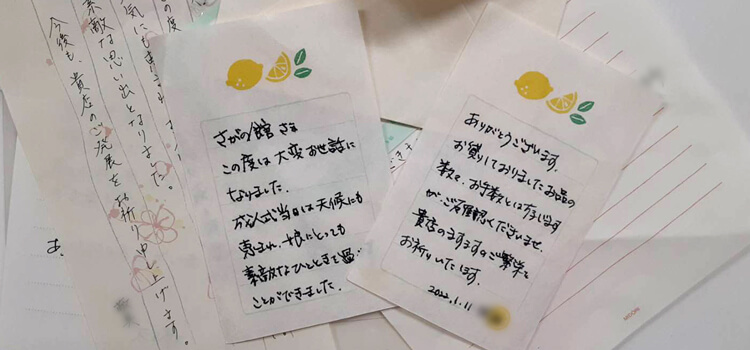 の度
気にも
素敵な思い出となりました。
今後も、貴店のご発展をお祈り申し上げます。
さがの館 さま
この度は大変お世話に
なりました。
成人式当日は天候にも
恵まれ、娘にとっても
素敵なひとときを過ごす
ことができました。
ありがとうございます。
お借りしておりましたお品の
数々、お手数とは存じます
が、ご確認くださいませ。
貴店のますますのご繁栄を
お祈りいたします。
2022.1.11
MOON